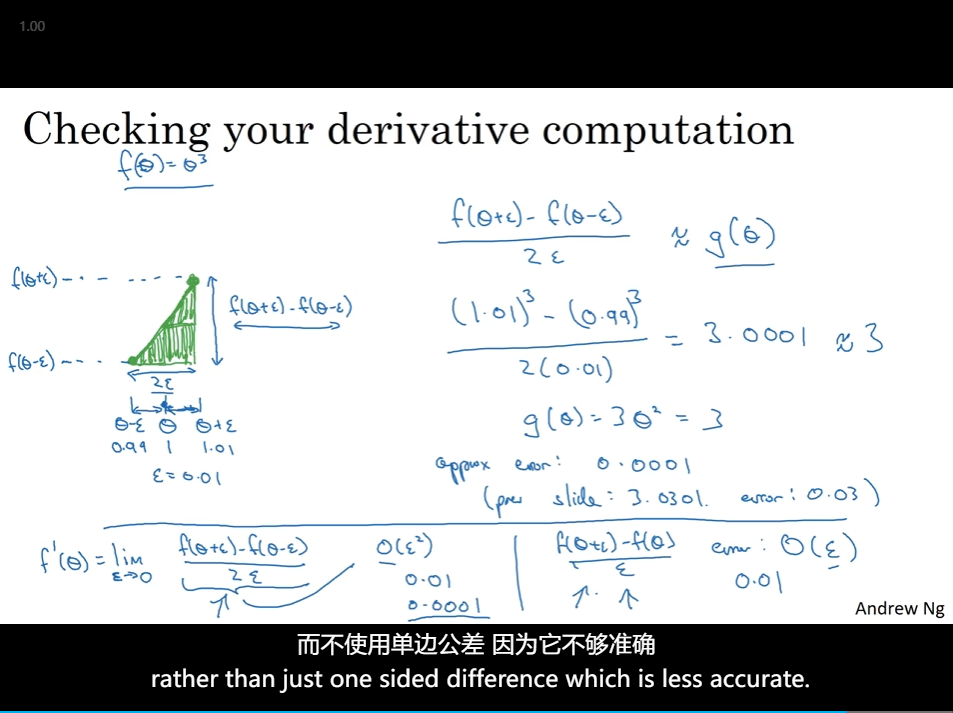 1.00
Checking your derivative computation
f(θ) = θ³
f(θ+ε)
f(θ-ε)
f(θ+ε) - f(θ-ε)
2ε
θ-ε θ θ+ε
0.99 1 1.01
ε = 0.01
f(θ+ε) - f(θ-ε)
2ε
≈ g(θ)
(1.01)³ - (0.99)³
2(0.01)
= 3.0001 ≈ 3
g(θ) = 3θ² = 3
approx error: 0.0001
(prev slide: 3.0301. error: 0.03)
f'(θ) = lim ε→0
f(θ+ε) - f(θ-ε)
2ε
O(ε²)
0.01
0.0001
f(θ+ε) - f(θ)
ε
error: O(ε)
0.01
Andrew Ng
而不使用单边公差 因为它不够准确
rather than just one sided difference which is less accurate.